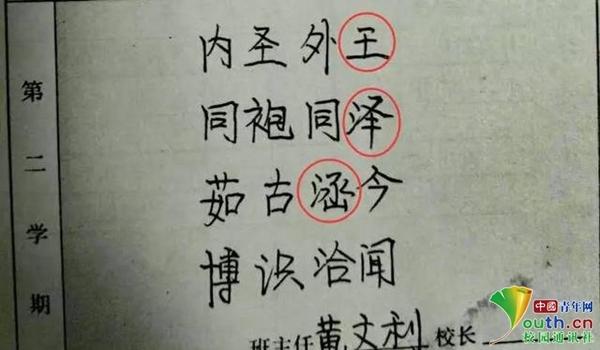 第二学期
内圣外王
同袍同泽
茹古涵今
博识洽闻
班主任 黄文利 校长
中國青年网
youth.cn
校园通讯社